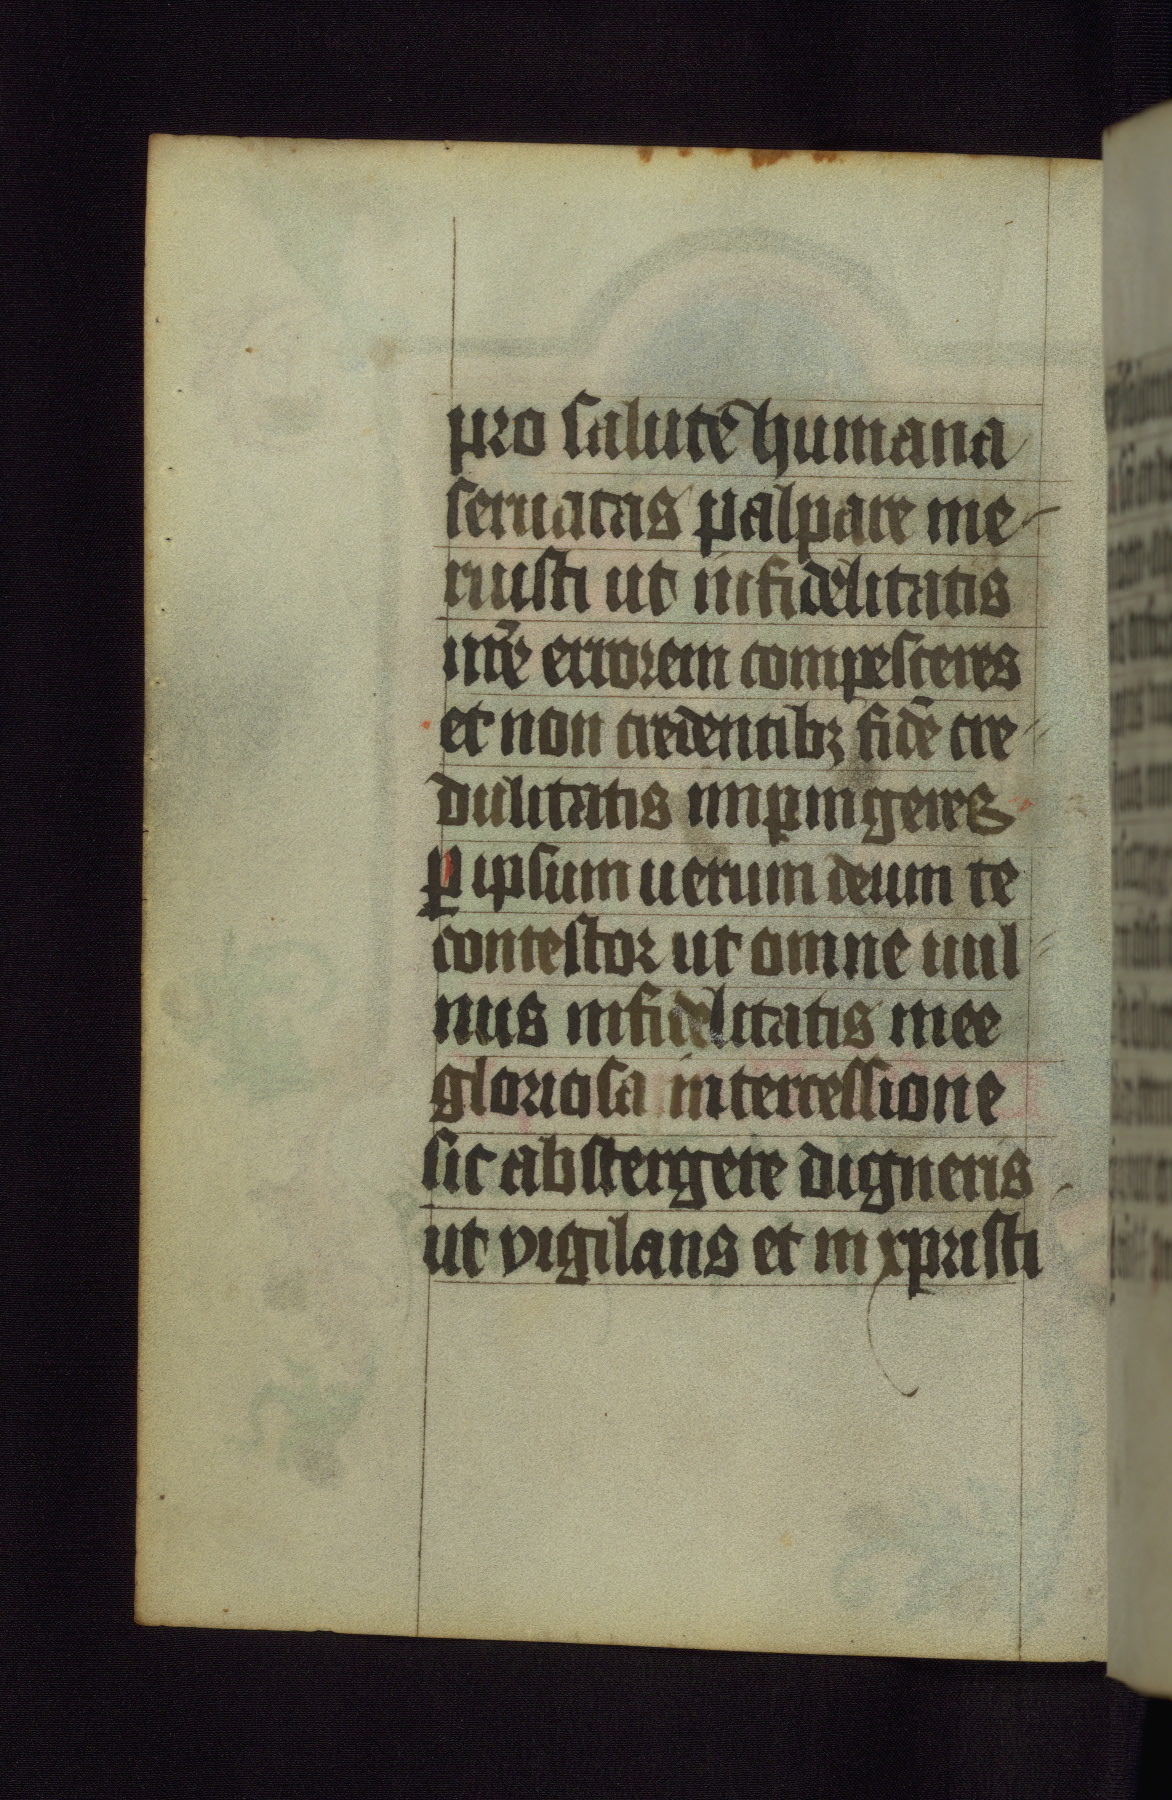 pro salutē humana
seruatas palpare me-
ruisti ut infidelitatis
nr̄e errorem compesceres
et non credentibꝫ fidē cre
dulitatis impingeres
ꝑ ipsum uerum deum te
contestor ut omne uul
nus infidelitatis mee
gloriosa intercessione
sic abstergere digneris
ut vigilans et in xpristi